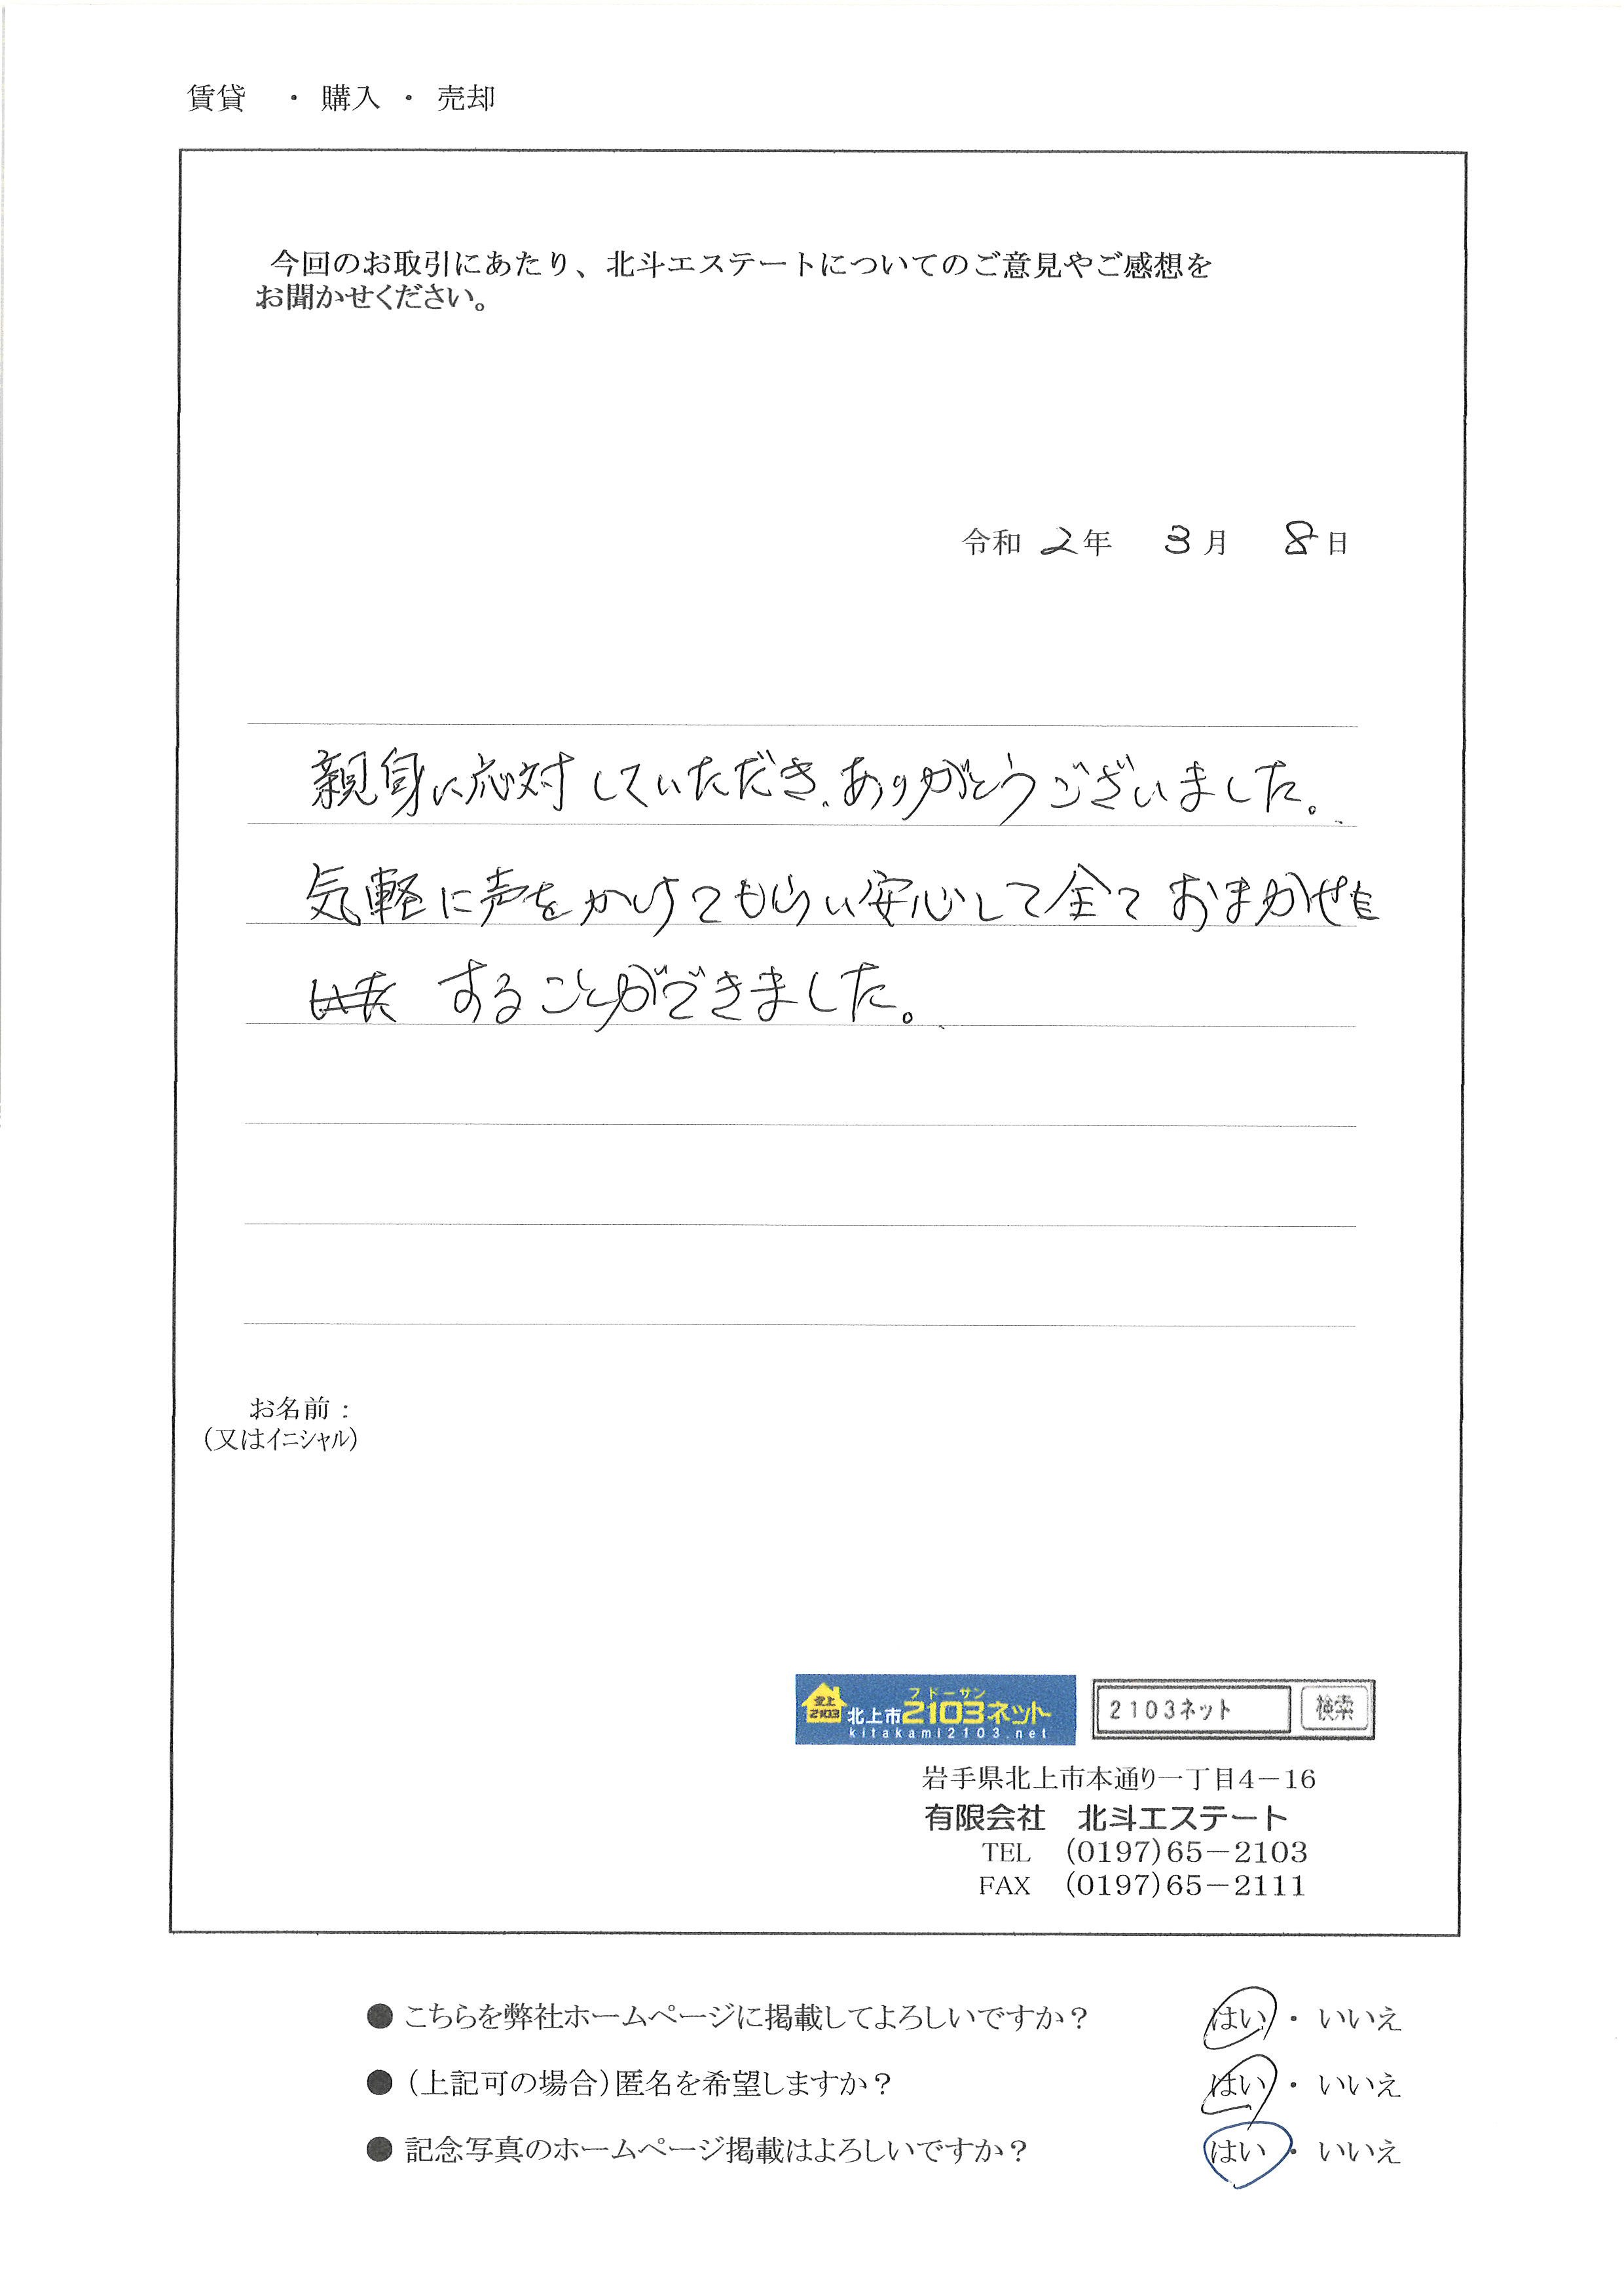 賃貸 ・ 購入 ・ 売却
今回のお取引にあたり、北斗エステートについてのご意見やご感想を
お聞かせください。
令和 2年 3月 8日
親身に応対していただき、ありがとうございました。
気軽に声をかけてもらい安心して全ておまかせ
することができました。
お名前：
（又はイニシャル）
北上
2103
フドーサン
北上市2103ネット
kitakami2103.net
2103ネット 検索
岩手県北上市本通り一丁目4－16
有限会社 北斗エステート
TEL （0197）65－2103
FAX （0197）65－2111
● こちらを弊社ホームページに掲載してよろしいですか？ はい ・ いいえ
● （上記可の場合）匿名を希望しますか？ はい ・ いいえ
● 記念写真のホームページ掲載はよろしいですか？ はい ・ いいえ